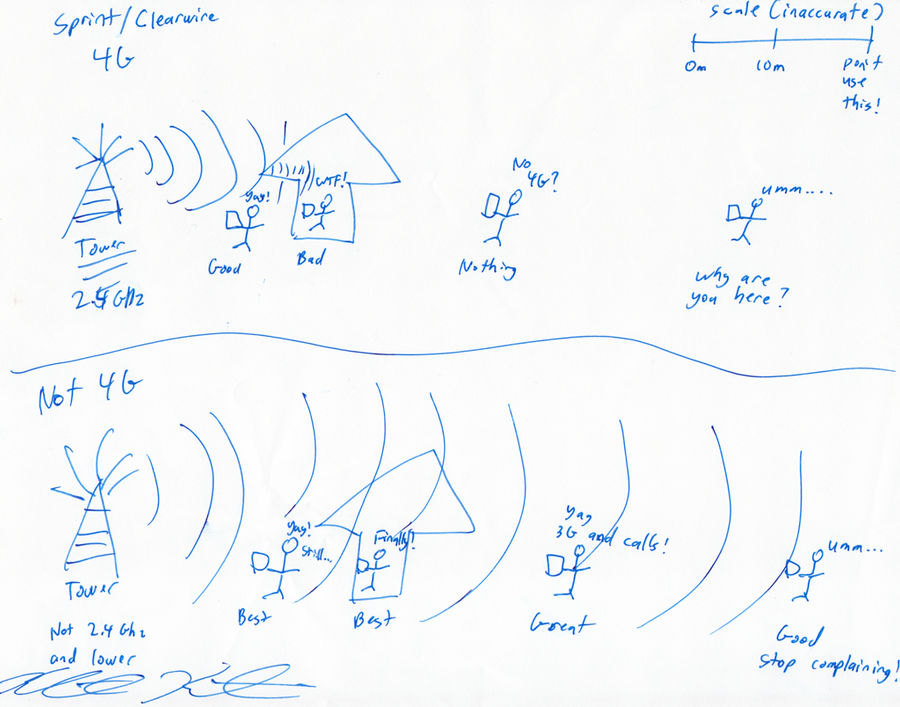 Sprint/Clearwire
4G
scale (inaccurate)
0m
10m
Don't
use
this!
Yay!
WTF!
No
4G?
umm....
Tower
Good
Bad
Nothing
why are
you here?
GHz
Not 4G
Yay!
Still...
Finally!
Yay
3G and calls!
Umm...
Tower
Best
Best
Great
Good
Stop complaining!
Not 2.4 Ghz
and lower